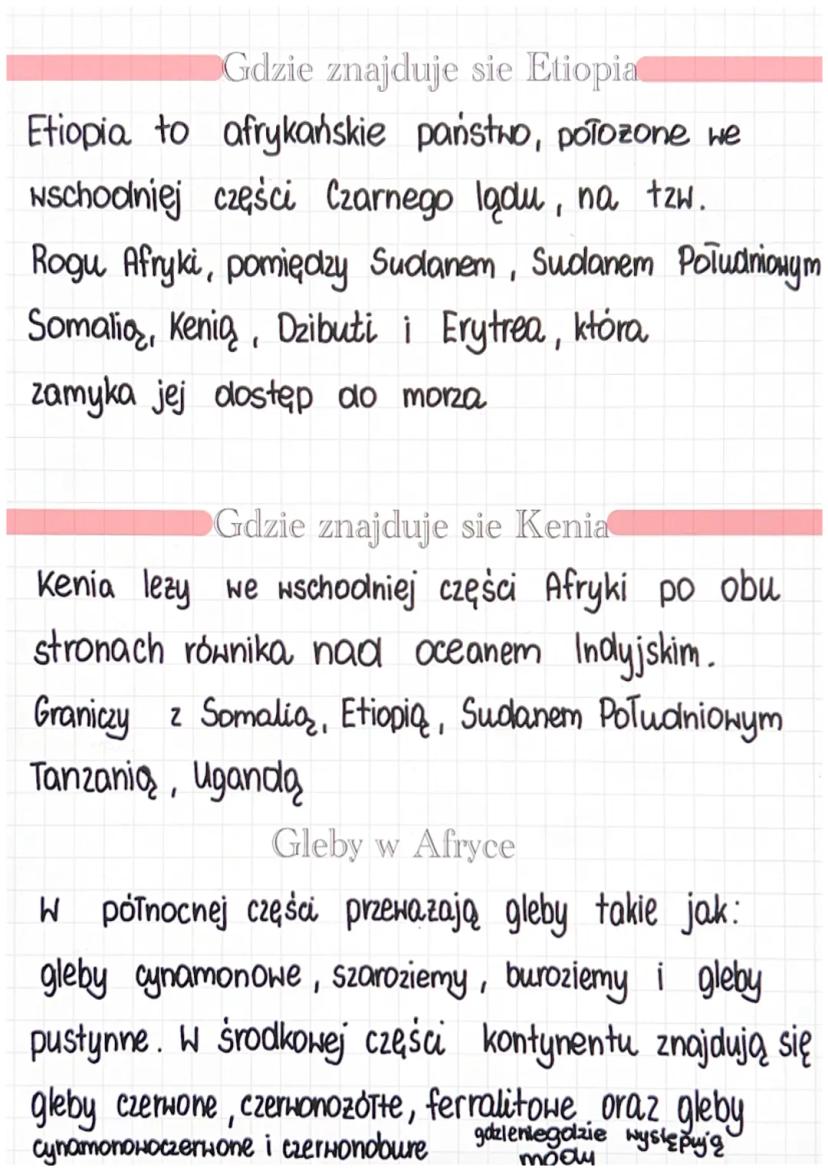 Gdzie znajduje sie Etiopia
Etiopia to afrykańskie państwo, położone we
wschodniej części Czarnego lądu, na tzw.
Rogu Afryki, pomiędzy Sudanem, Sudanem Południowym
Somalią, Kenią, Dzibuti i Erytrea, która
zamyka jej dostęp do morza
Gdzie znajduje sie Kenia
Kenia leży we wschodniej części Afryki po obu
stronach równika nad oceanem Indyjskim.
Graniczy z Somalią, Etiopią, Sudanem Południowym
Tanzanią, Ugandą
Gleby w Afryce
W północnej części przeważają gleby takie jak:
gleby cynamonowe, szaroziemy, buroziemy i gleby
pustynne. W środkowej części kontynentu znajdują się
gleby czerwone, czerwonożółte, ferralitowe oraz gleby
cynamonowoczerwone i czerwonobure gdzieniegdzie występują
mady